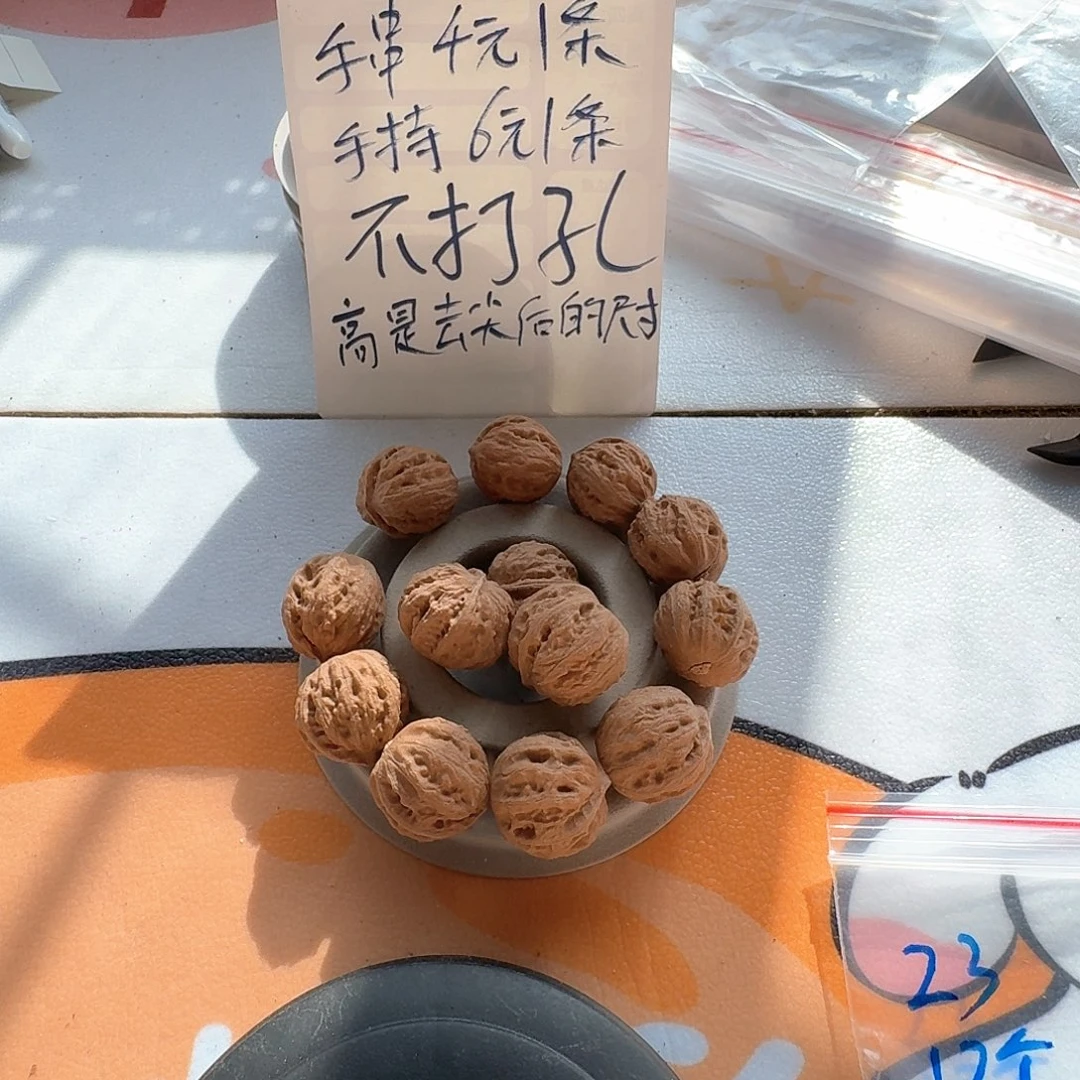 手串 4元1条
手持 6元1条
不打孔
高是去尖后的尺寸
23
12个